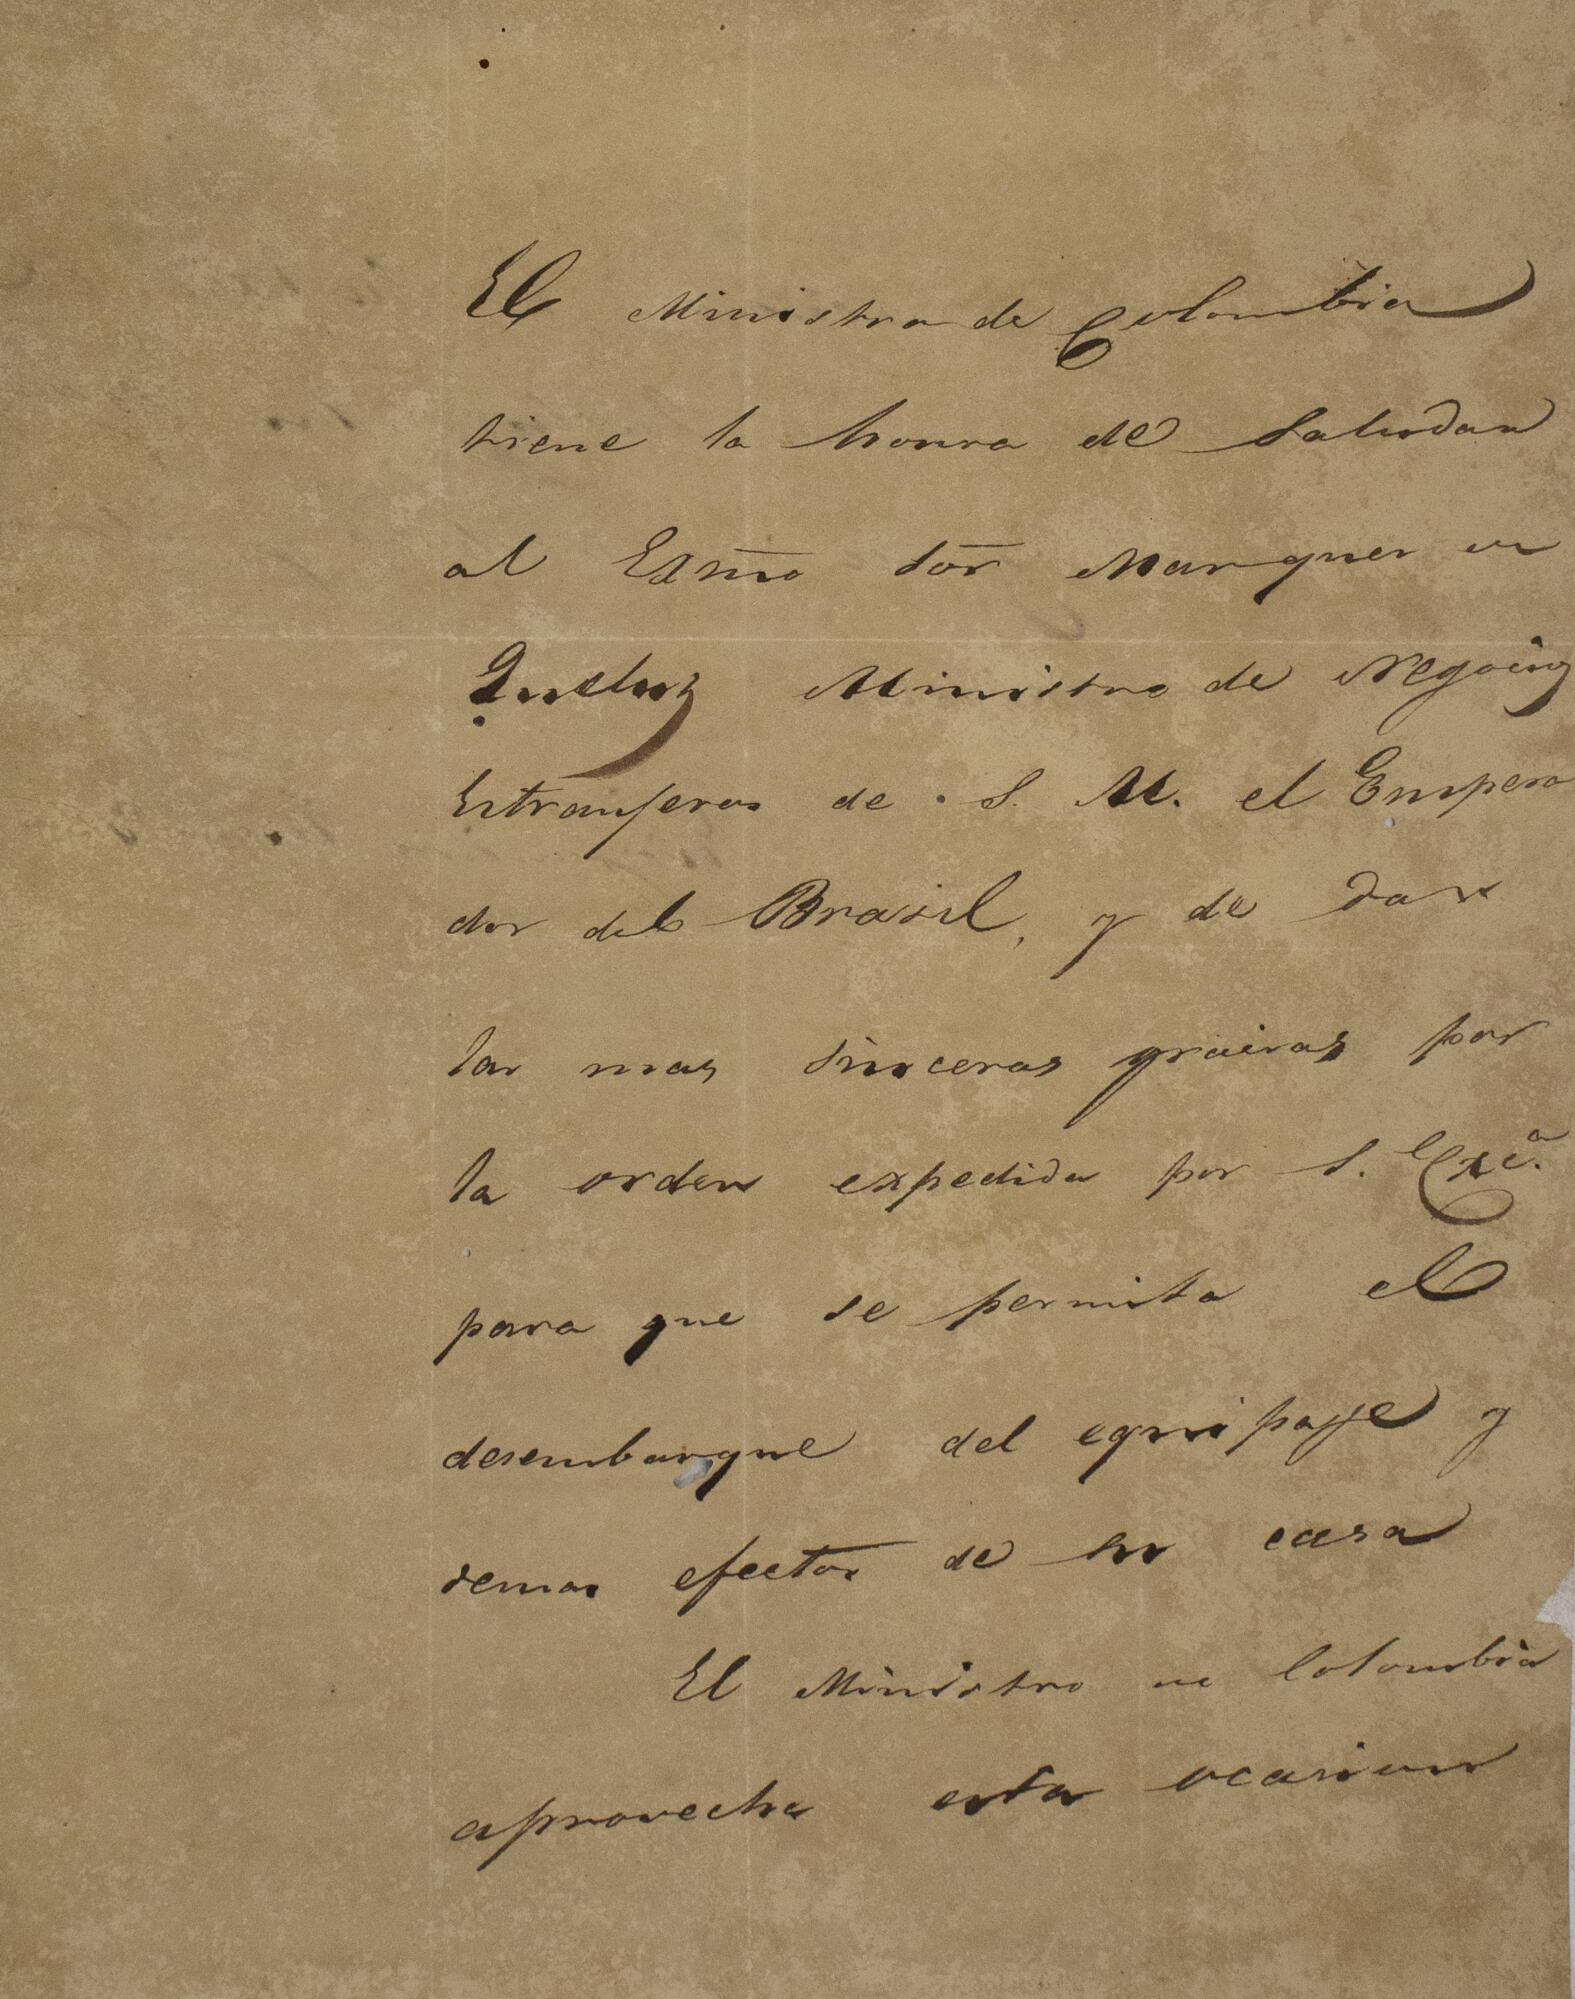 El Ministro de Colombia
tiene la honra de saludar
al Exmo Sor Marques de
Queluz Ministro de Negocios
Estranjeros de S. M. el Empera
dor del Brasil, y de dar
las mas sinceras gracias por
la orden expedida por S. Exca.
para que se permita el
desembarque del equipaje y
demas efectos de su casa
El Ministro de Colombia
aprovecha esta ocasion